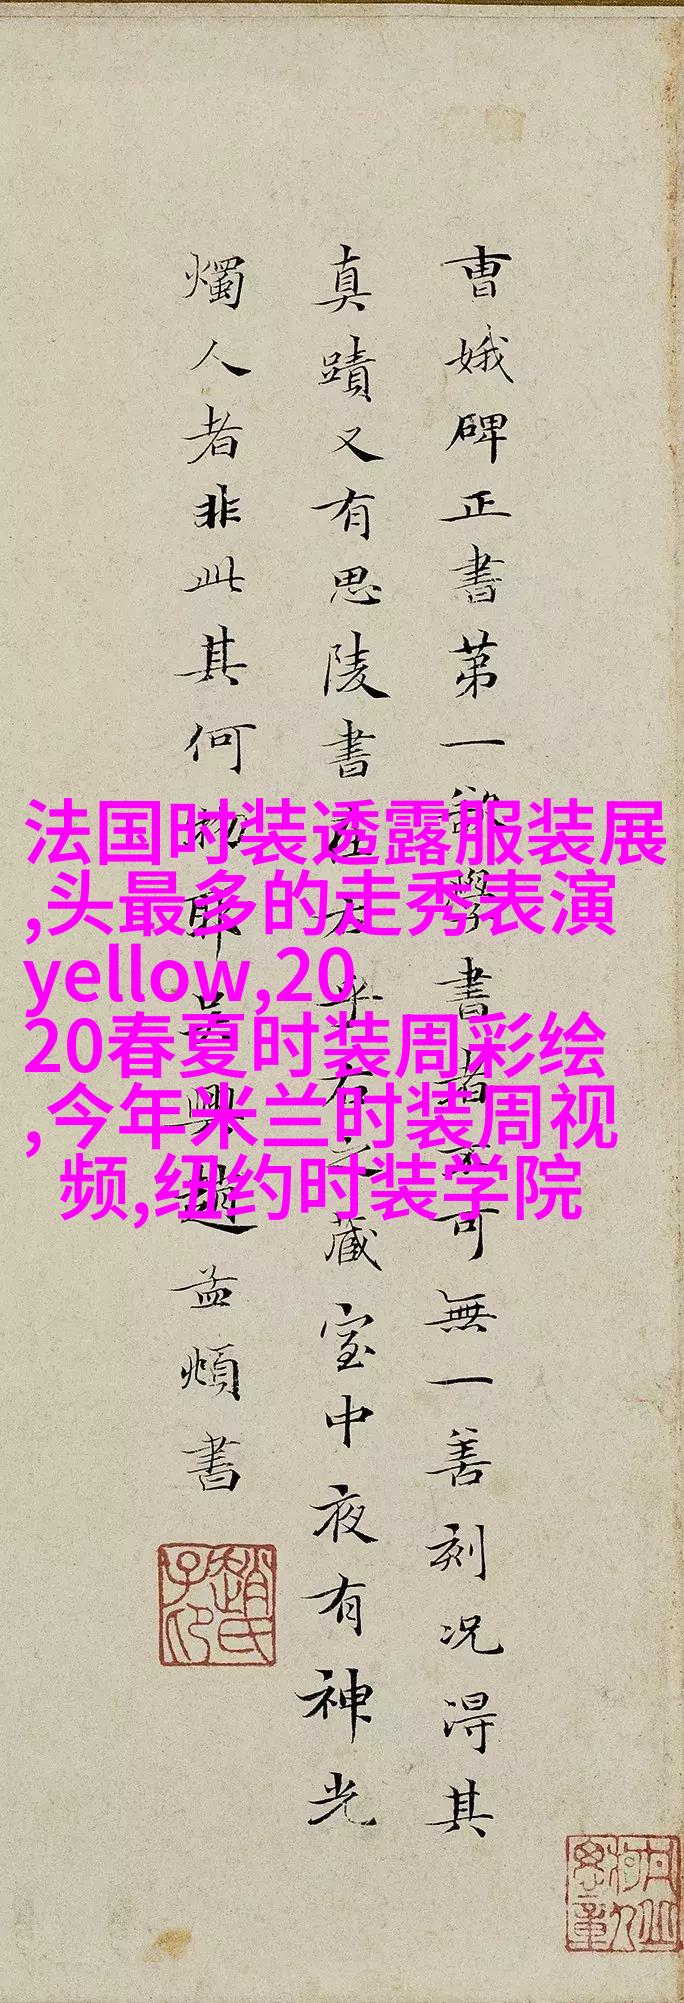 曹娥碑正書第一欲學書者不可無一善刻况淂其
真蹟又有思陵書在太乎右之藏室中夜有神光
燭人者非此其何物耶吴興趙孟頫書
趙氏子印
法国时装透露服装展
,头最多的走秀表演
yellow,20
20春夏时装周彩绘
,今年米兰时装周视
频,纽约时装学院